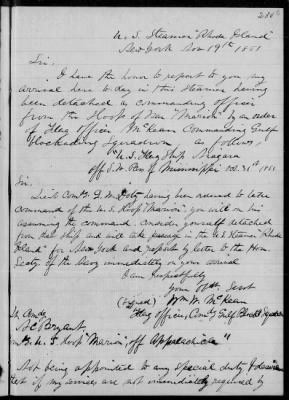 U. S. Steamer "Rhode Island"
New York Nov 19th 1861
Sir.
I have the honor to report to you my
arrival here to day in this Steamer having
been detached as commanding officer
from the Sloop of War "Marion" by an order
of Flag Officer McKean Commanding Gulf
Blockading Squadron as follows,
"U. S. Flag Ship Niagara
off S. W. Pass of Mississippi Oct 31st 1861
Sir.
Lieut Comdg having been ordered to take
command of the U. S. Sloop "Marion", you will on his
assuming the command, consider yourself detached
from that Ship and will take passage in the U. S. Steamer "Rhode
Island" for New York and report by letter to the Hon
Secty of the Navy immediately on your arrival
I am respectfully
your Obt. Servt
(signed) Wm W. McKean
Flag officer, Comdg Gulf Blockd Squadron
Comdr
A C Bryant
U. S. Sloop "Marion", off Appalachicola"
Not being appointed to any special duty I desire
if my services are not immediately required by